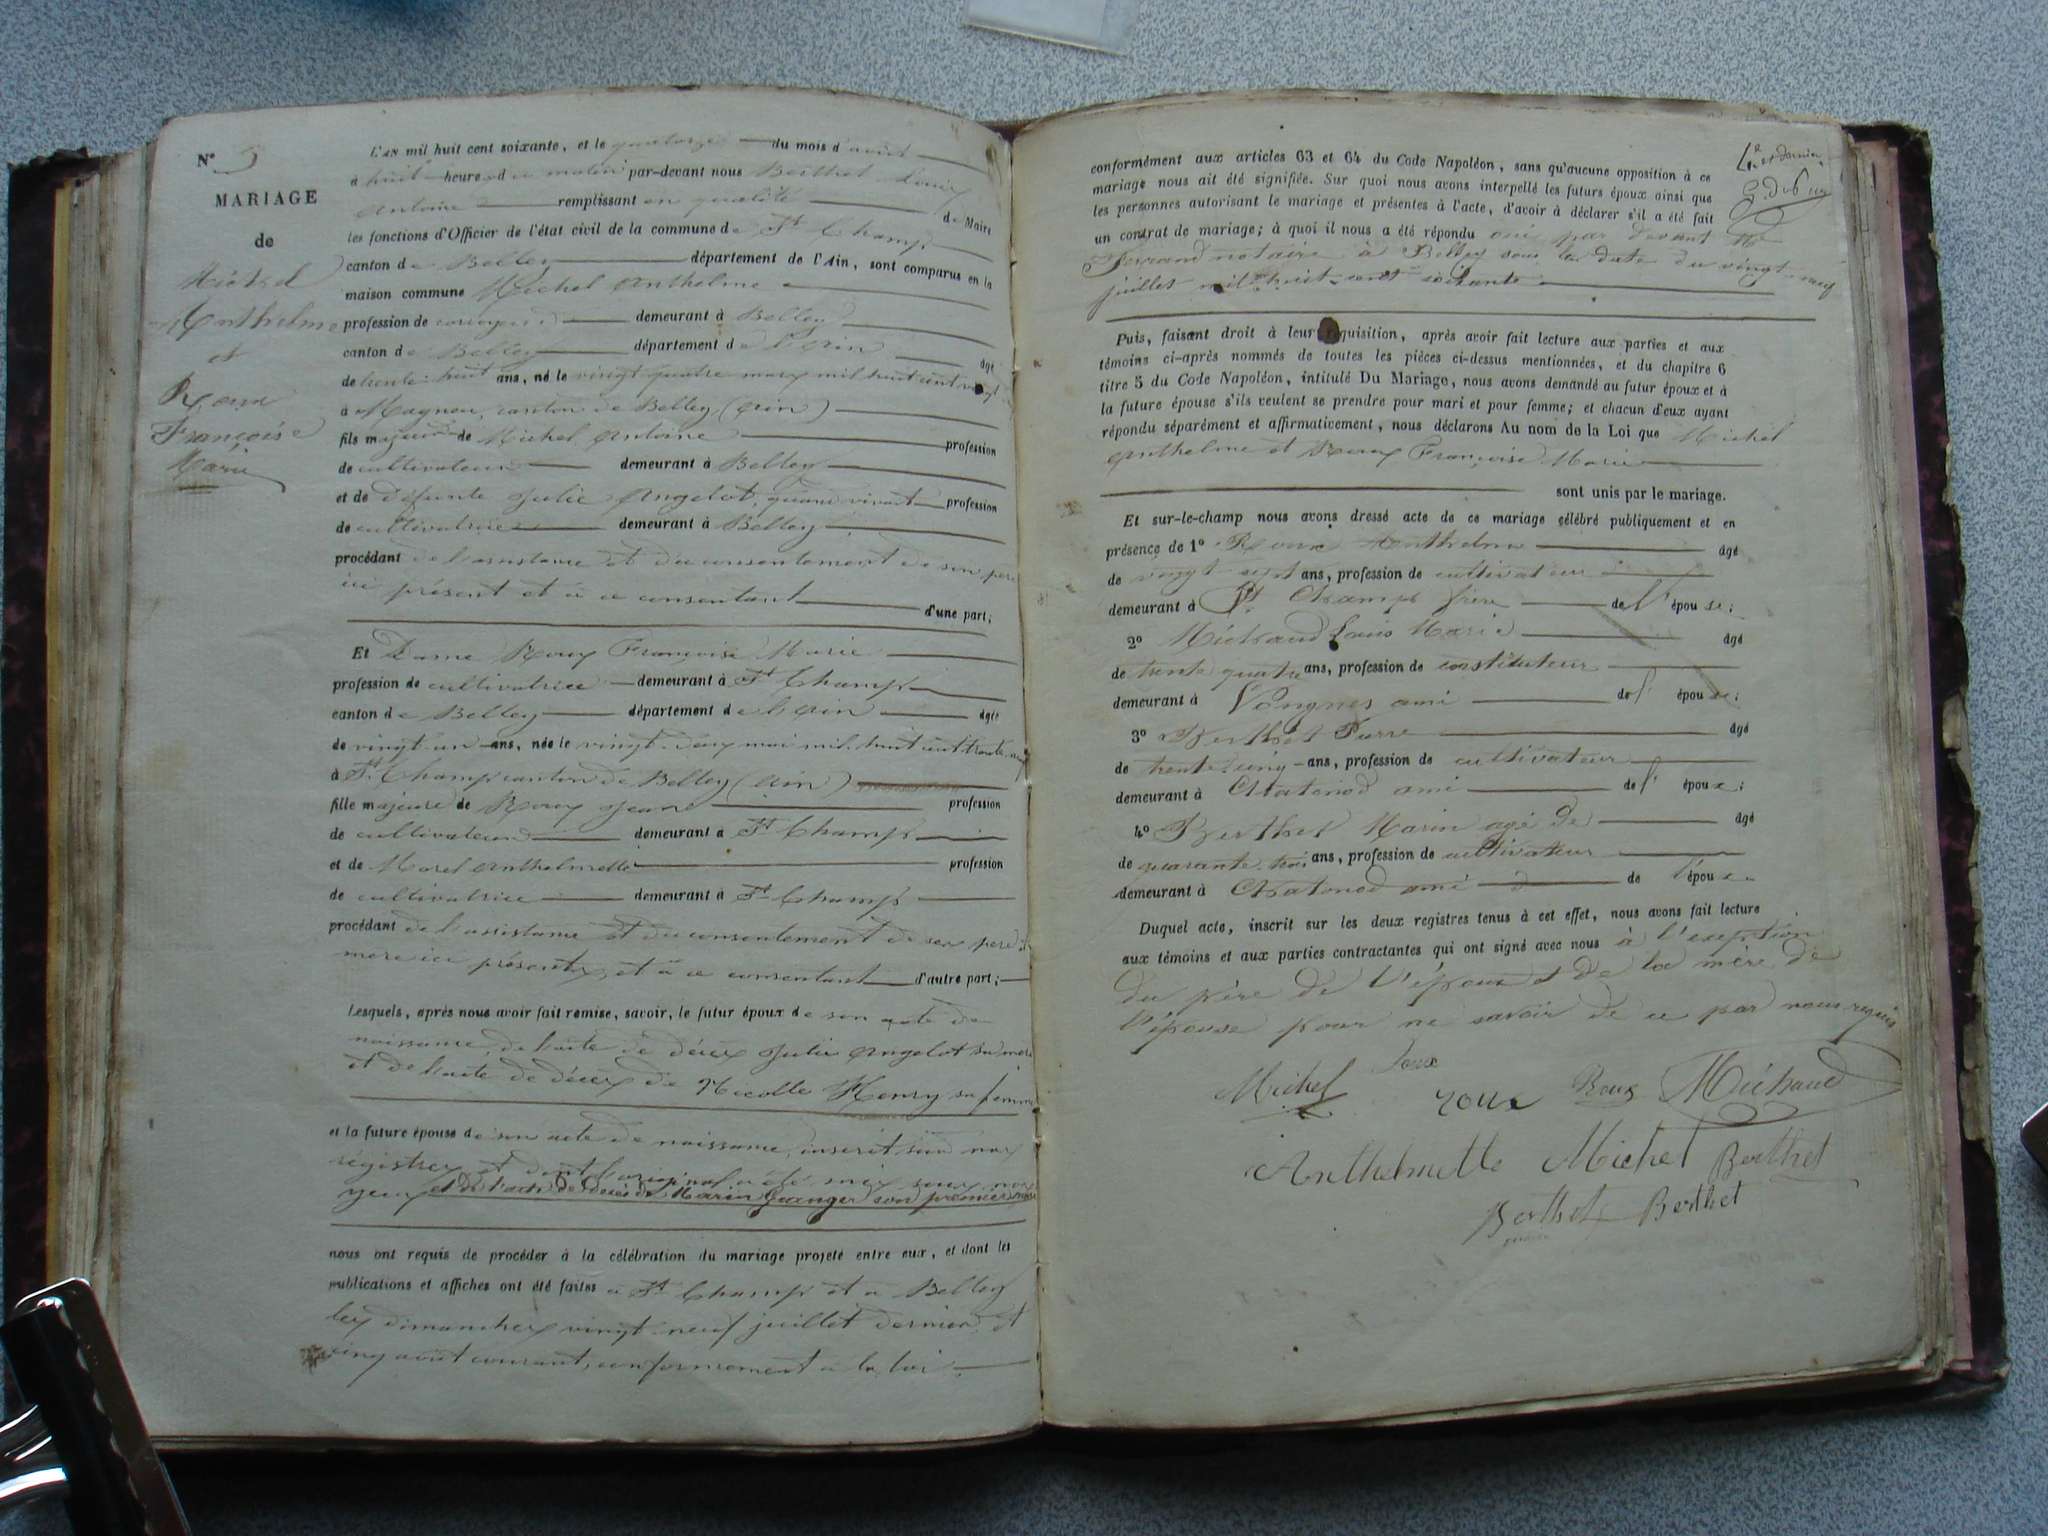 N° 5
MARIAGE
de
Michel
Anthelme
et
Roux
Françoise
Marie
L'AN mil huit cent soixante, et le quatorze du mois d'août
à huit heures du matin par-devant nous Berthet Louis
Antoine remplissant en qualité de Maire
les fonctions d'Officier de l'état civil de la commune de St Champ
canton de Belley département de l'Ain, sont comparus en la
maison commune Michel Anthelme
profession de demeurant à Belley
canton de Belley département de l'Ain âgé
de trente-huit ans, né le vingt quatre mars mil huit cent vingt
à Magnieu, canton de Belley (Ain)
fils majeur de Michel Antoine profession
de cultivateur demeurant à Belley
et de défunte Julie Angelot, quand vivait profession
de cultivatrice demeurant à Belley
procédant de l'assistance et du consentement de son père
ici présent et à ce consentant d'une part;
Et Dame Roux Françoise Marie
profession de cultivatrice demeurant à St Champ
canton de Belley département de l'Ain âgée
de vingt-un ans, née le vingt-deux mai mil huit cent trente-neuf
à St Champ canton de Belley (Ain)
fille majeure de Roux Jean profession
de cultivateur demeurant à St Champ
et de Morel Anthelmette profession
de cultivatrice demeurant à St Champ
procédant de l'assistance et du consentement de ses père et
mère ici présents, et à ce consentant d'autre part;
Lesquels, après nous avoir fait remise, savoir, le futur époux de son acte de
naissance, de l'acte de décès Julie Angelot sa mère
et de l'acte de décès de Nicolle Henry sa femme
et la future épouse de son acte de naissance, inscrit sur nos
régistres et dont l'original a été mis sous nos
yeux et de l'acte de décès de Marin Granger son premier mari
nous ont requis de procéder à la célébration du mariage projeté entre eux, et dont les
publications et affiches ont été faites à St Champ et à Belley
les dimanches vingt-neuf juillet dernier et
cinq août courant, conformément à la loi
4e et dernier
conformément aux articles 63 et 64 du Code Napoléon, sans qu'aucune opposition à ce
mariage nous ait été signifiée. Sur quoi nous avons interpellé les futurs époux ainsi que
les personnes autorisant le mariage et présentes à l'acte, d'avoir à déclarer s'il a été fait
un contrat de mariage; à quoi il nous a été répondu oui par devant Me
notaire à Belley sous la date du vingt-neuf
juillet mil huit cent soixante
Puis, faisant droit à leur réquisition, après avoir fait lecture aux parties et aux
témoins ci-après nommés de toutes les pièces ci-dessus mentionnées, et du chapitre 6
titre 5 du Code Napoléon, intitulé Du Mariage, nous avons demandé au futur époux et à
la future épouse s'ils veulent se prendre pour mari et pour femme; et chacun d'eux ayant
répondu séparément et affirmativement, nous déclarons Au nom de la Loi que Michel
Anthelme et Roux Françoise Marie
sont unis par le mariage.
Et sur-le-champ nous avons dressé acte de ce mariage célébré publiquement et en
présence de 1° Roux Anthelme âgé
de vingt-sept ans, profession de cultivateur
demeurant à St Champ frère de l'épouse;
2° Michaud Louis Marie âgé
de trente quatre ans, profession de instituteur
demeurant à Vongnes ami de l'épouse;
3° Berthet Pierre âgé
de trente-cinq ans, profession de cultivateur
demeurant à Chatonod ami de l'époux;
4° Berthet Marin agé de âgé
de quarante-trois ans, profession de cultivateur
demeurant à Chatonod ami de l'époux
Duquel acte, inscrit sur les deux registres tenus à cet effet, nous avons fait lecture
aux témoins et aux parties contractantes qui ont signé avec nous à l'exeption
du père de l'époux et de la mère de
l'épouse pour ne savoir de ce par nous requis
Michel roux Roux Michaud
Anthelmette Michel Berthet
Berthet Berthet